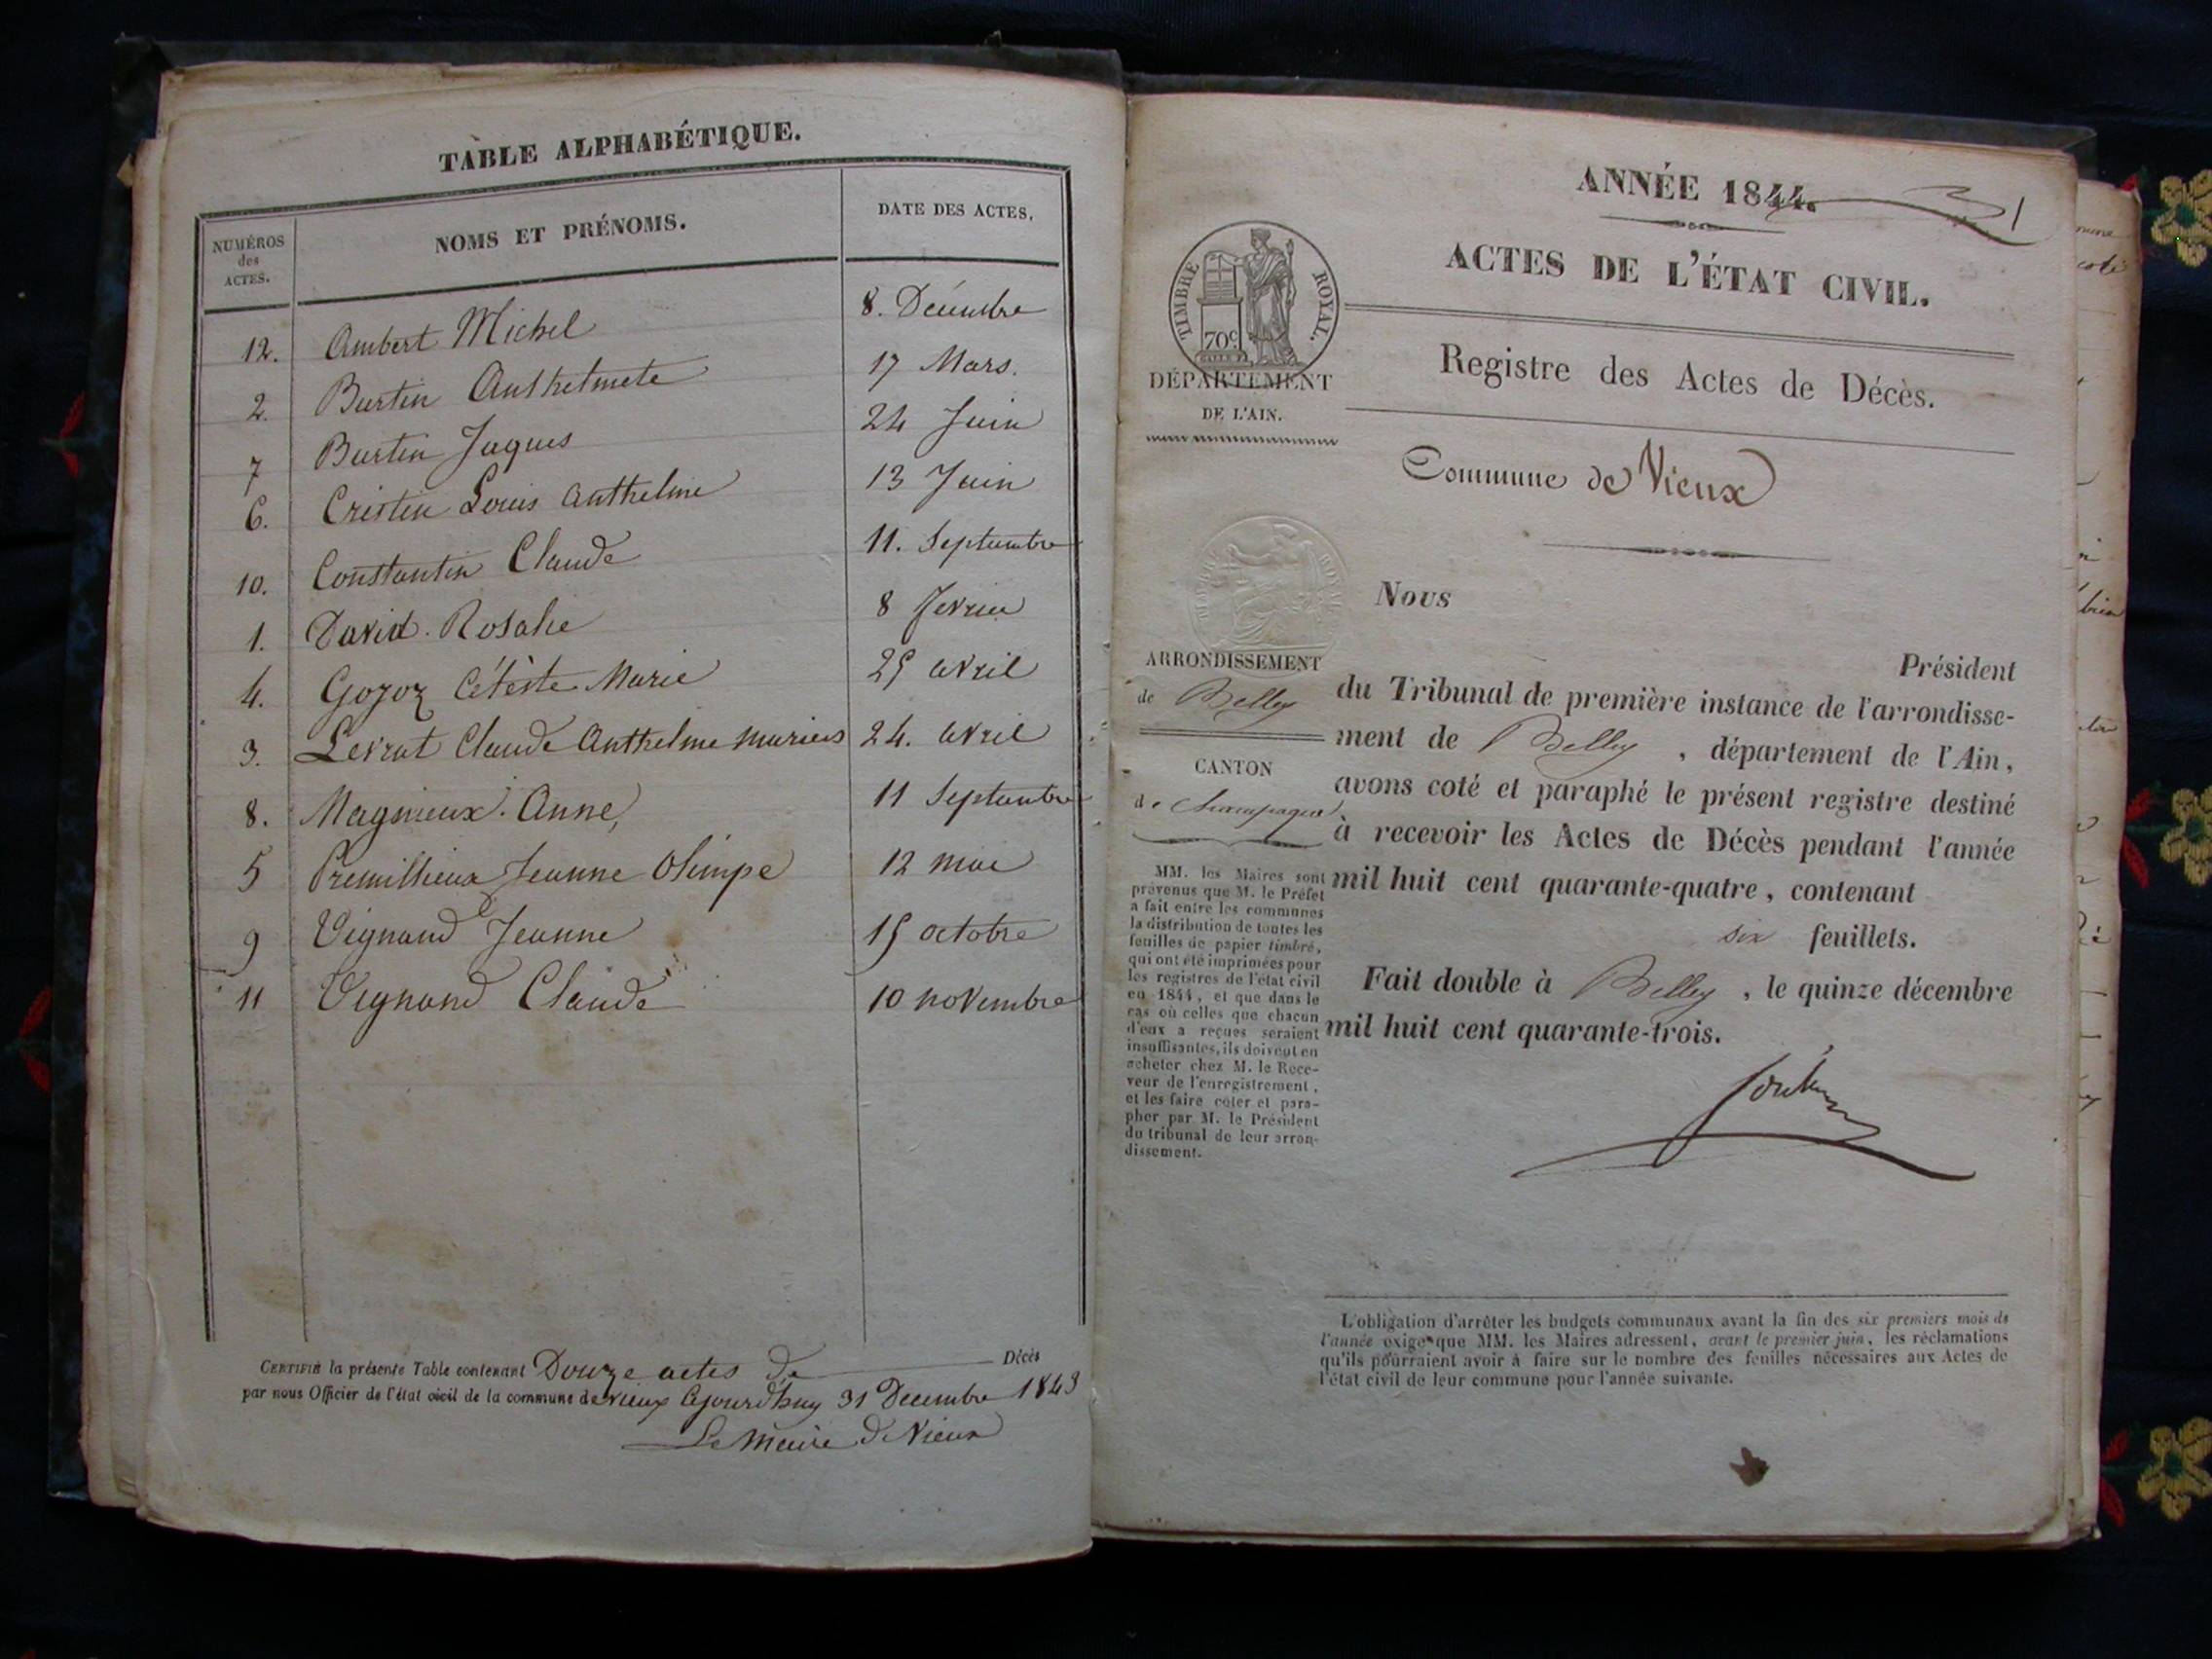 TABLE ALPHABÉTIQUE.
NUMÉROS des ACTES. NOMS ET PRÉNOMS. DATE DES ACTES.
12. Ambert Michel 8. Décembre
2. Burtin Anthelmete 17 Mars.
7 Burtin Jaques 24 Juin
6. Cristin Louis Anthelme 13 Juin
10. Constantin Claude 11. Septembre
1. David. Rosalie 8 fevrier
4. Gojoz Céleste Marie 25 avril
3. Levrat Claude Anthelme Marius 24. avril
8. Magnieux. Anne, 11 Septembre
5 Premillieux Jeanne Olimpe 12 mai
9 Vignand Jeanne 15 octobre
11 Vignand Claude 10 novembre
CERTIFIÉ la présente Table contenant Douze actes de Décès
par nous Officier de l'état civil de la commune de Vieux Cejourd'huy 31 Decembre 1843
Le Maire de Vieux
ANNÉE 1844.
1
ACTES DE L'ÉTAT CIVIL.
TIMBRE ROYAL.
70c
DÉPARTEMENT
DE L'AIN.
Registre des Actes de Décès.
Commune de Vieux
Nous
ARRONDISSEMENT
de Belley
CANTON
de Champagne
MM. les Maires sont
prévenus que M. le Préfet
a fait entre les communes
la distribution de toutes les
feuilles de papier timbré,
qui ont été imprimées pour
les registres de l'état civil
en 1844, et que dans le
cas où celles que chacun
d'eux a reçues seraient
insuffisantes, ils doivent en
acheter chez M. le Rece-
veur de l'enregistrement,
et les faire coter et para-
pher par M. le Président
du tribunal de leur arron-
dissement.
Président
du Tribunal de première instance de l'arrondisse-
ment de Belley, département de l'Ain,
avons coté et paraphé le présent registre destiné
à recevoir les Actes de Décès pendant l'année
mil huit cent quarante-quatre, contenant
six feuillets.
Fait double à Belley, le quinze décembre
mil huit cent quarante-trois.
L'obligation d'arrêter les budgets communaux avant la fin des six premiers mois de
l'année exige que MM. les Maires adressent, avant le premier juin, les réclamations
qu'ils pourraient avoir à faire sur le nombre des feuilles nécessaires aux Actes de
l'état civil de leur commune pour l'année suivante.